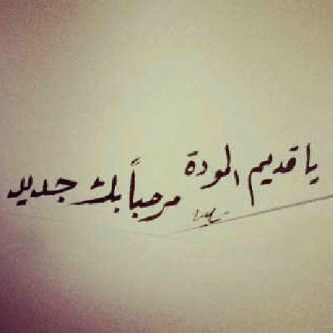 يا قديم المودة
مرحباً بك جديد